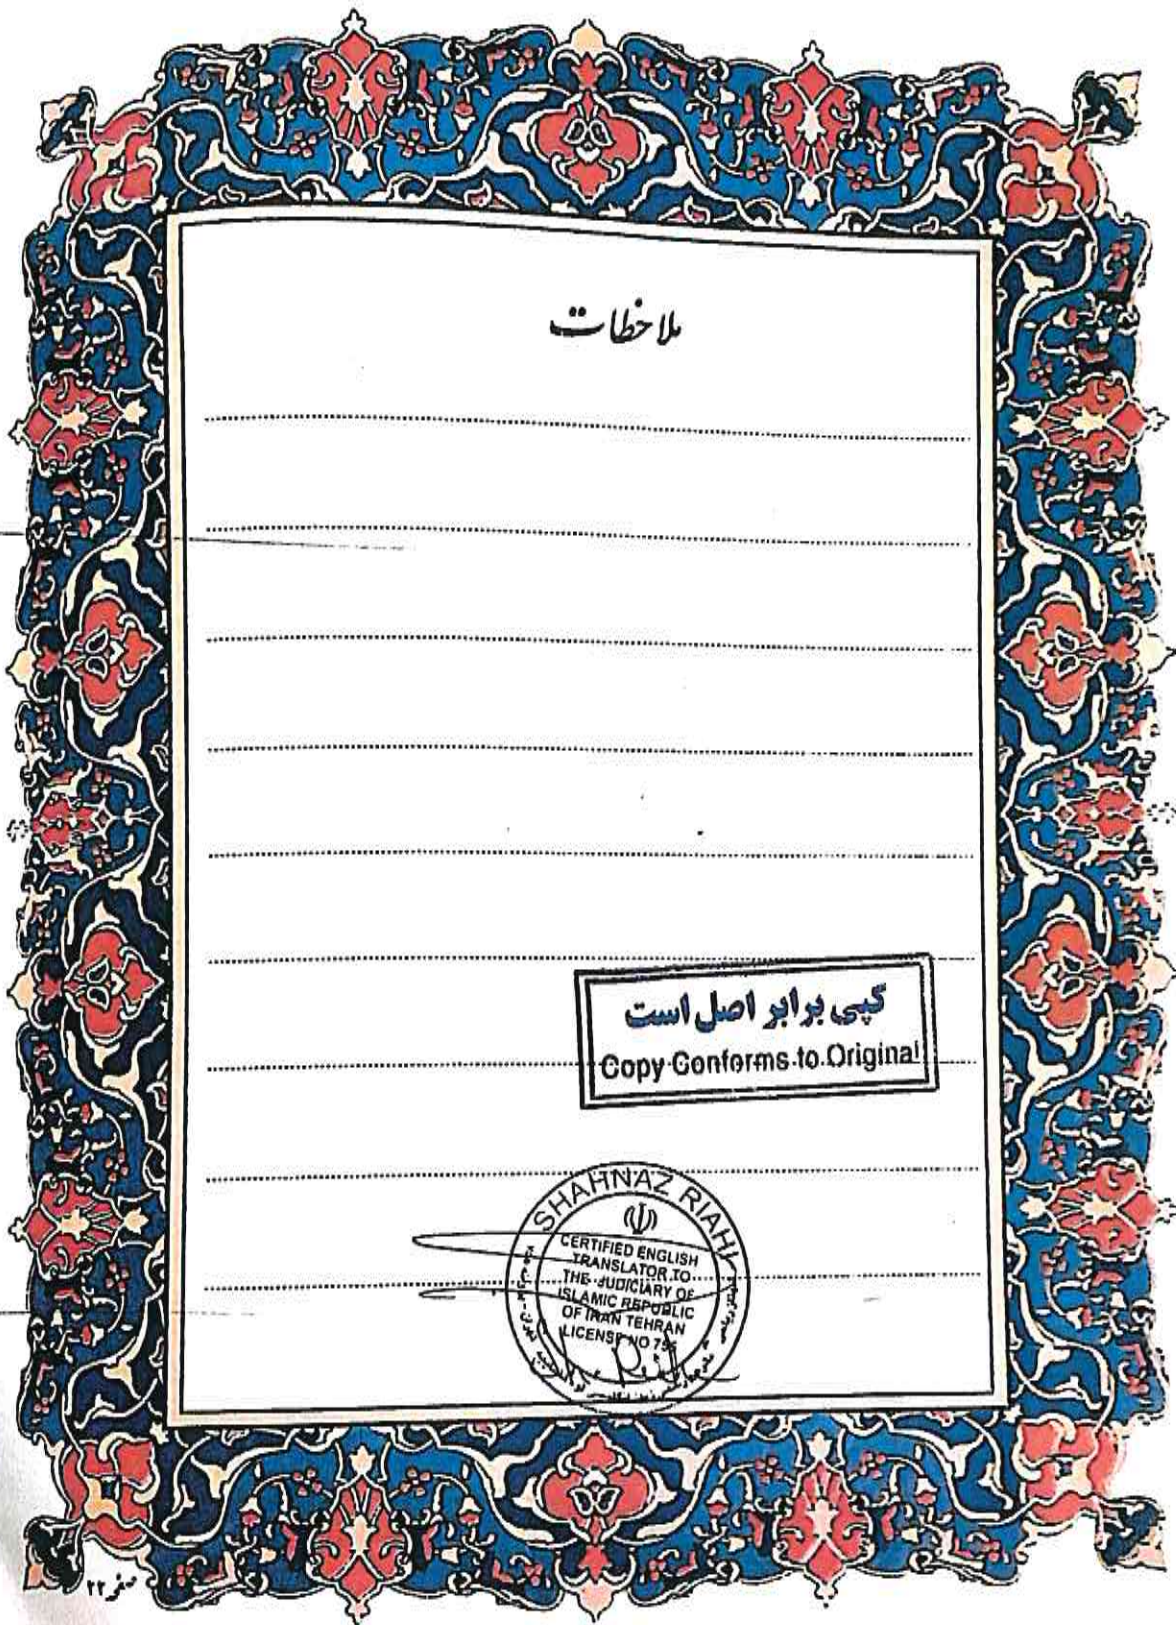 ملاحظات
کپی برابر اصل است
Copy Conforms to Original
SHAHNAZ RIAHI
CERTIFIED ENGLISH
TRANSLATOR TO
THE JUDICIARY OF
ISLAMIC REPUBLIC
OF IRAN TEHRAN
LICENSE NO
صفحه ۲۲